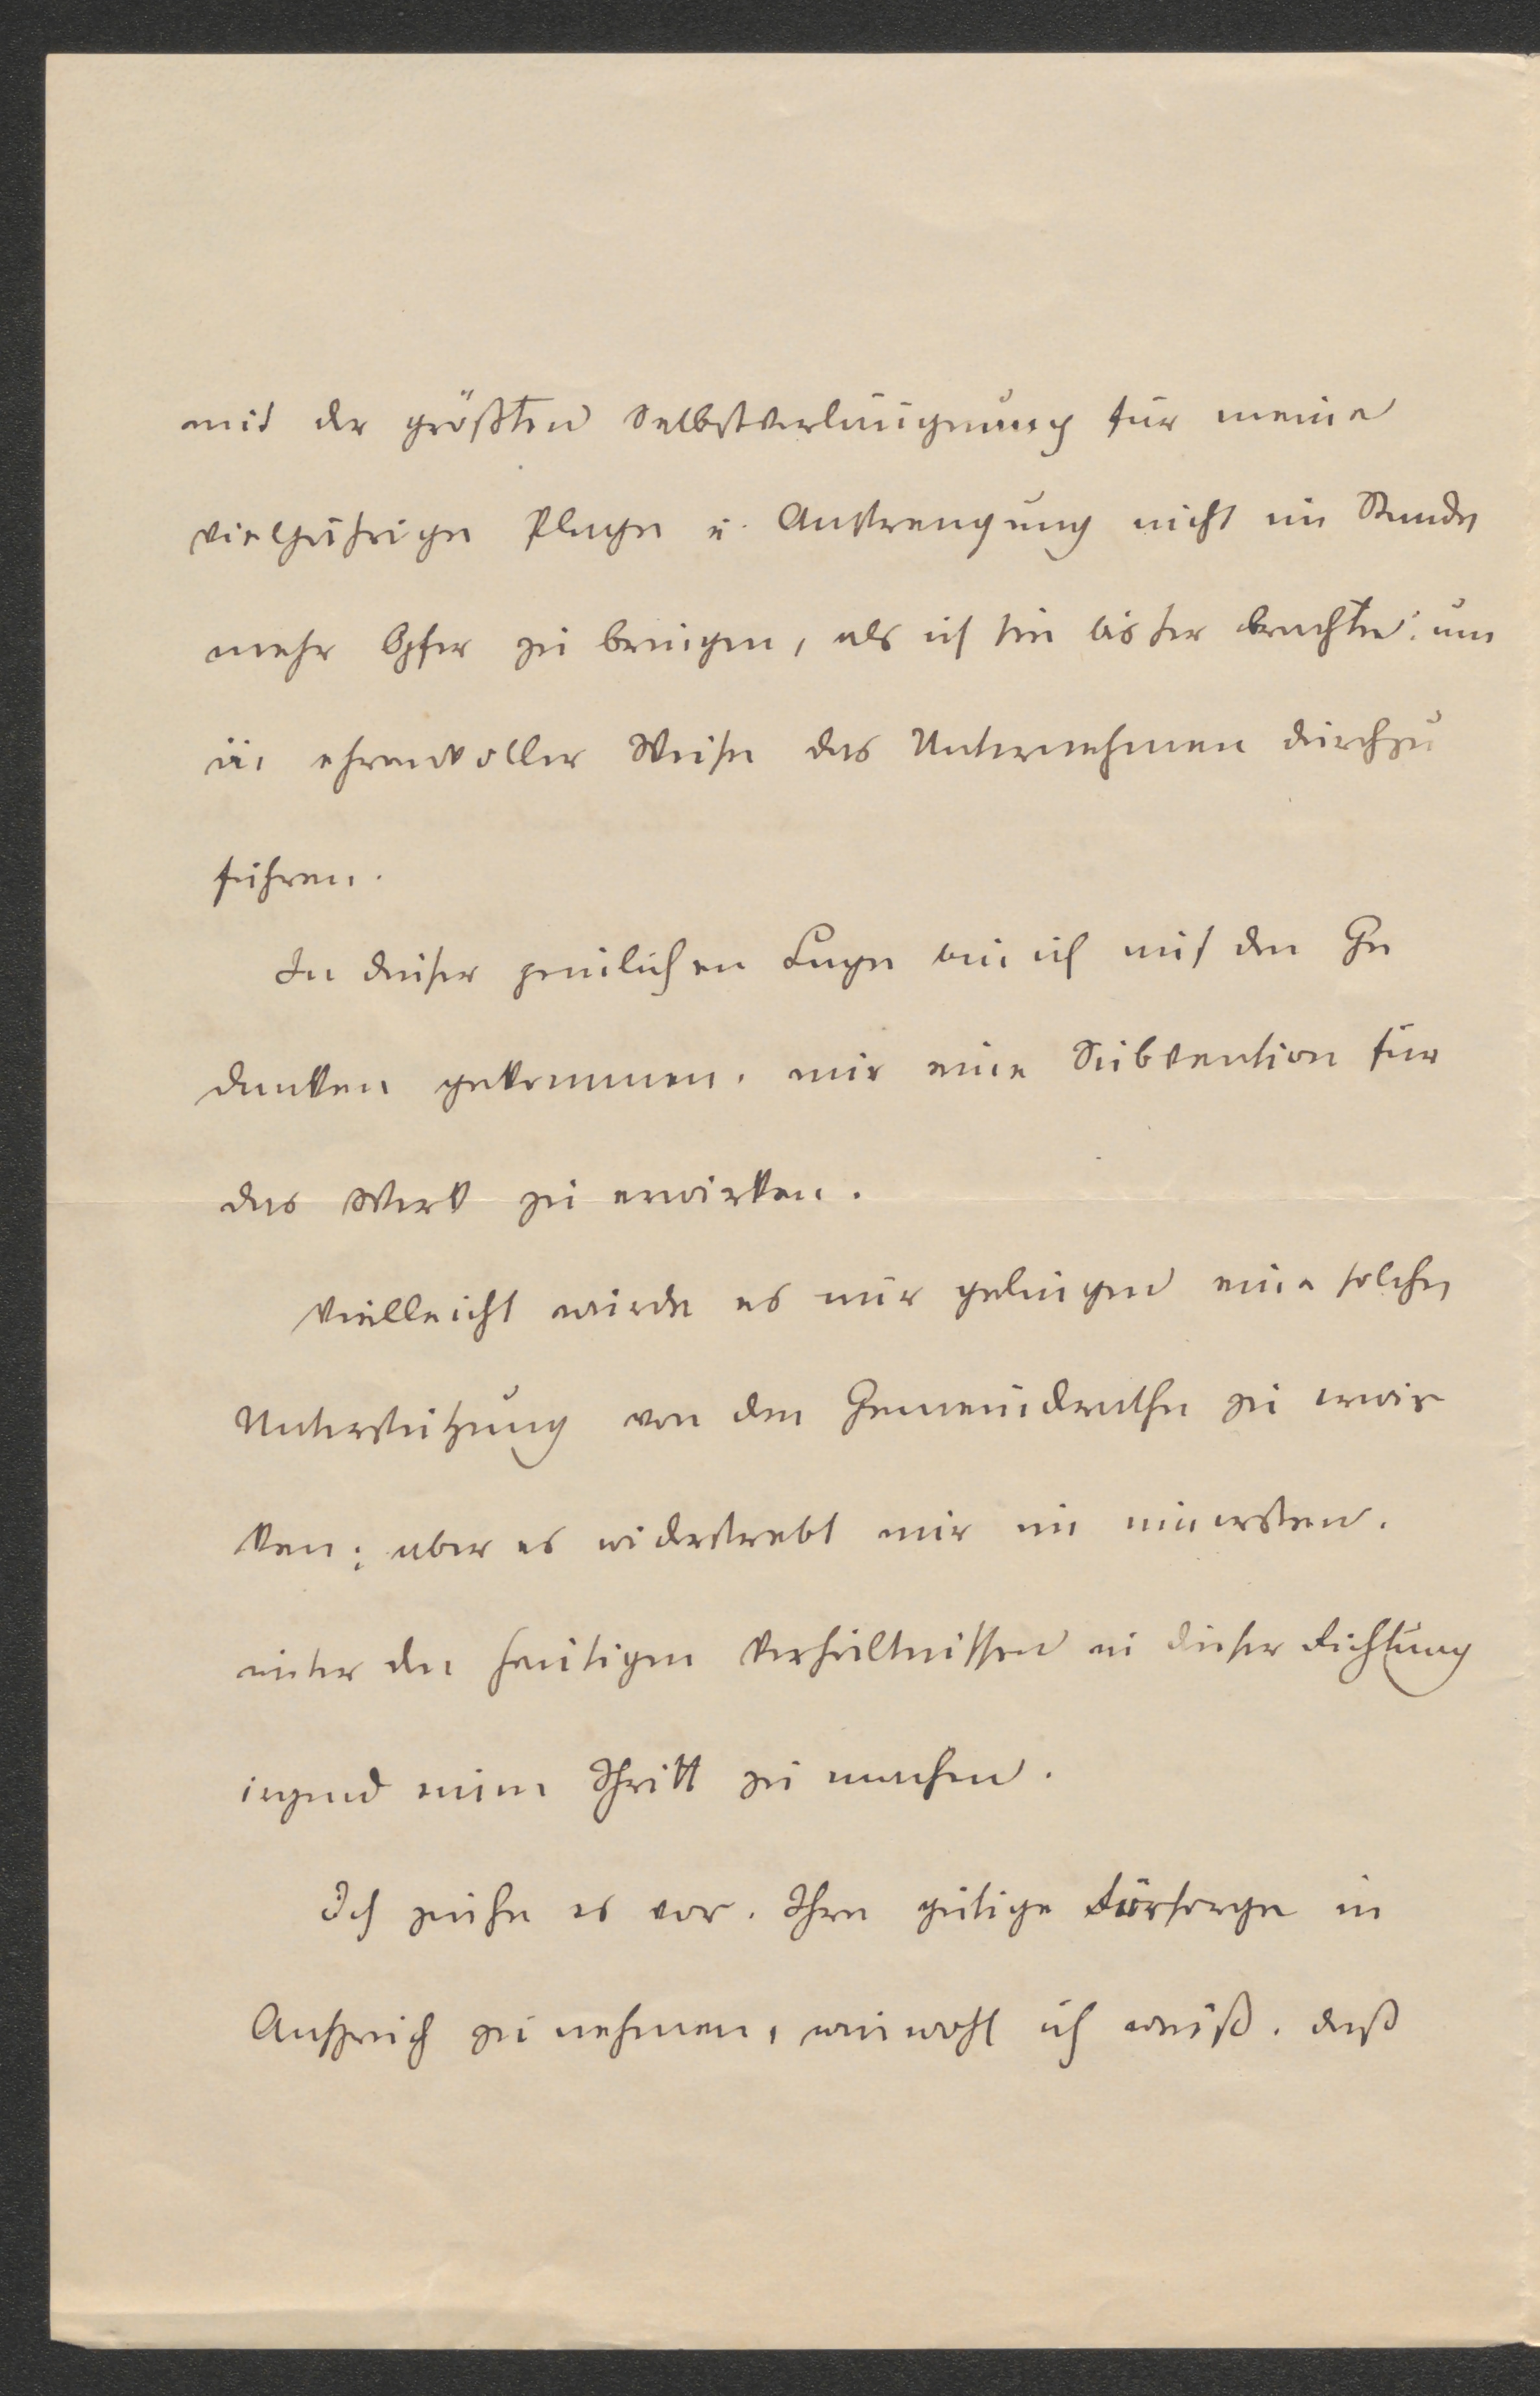 mit der größten Selbstverläugnung für meine
vieljährige Plage u. Anstrengung nicht im Stande
mehr Opfer zu bringen, als ich sie bisher brachte: um
in ehrenvoller Weise das Unternehmen durchzu
führen.
In dieser peinlichen Lage bin ich auf den Ge
danken gekommen, mir eine Subvention für
das Werk zu erwirken.
Vielleicht würde es mir gelingen eine solche
Unterstützung von dem Gemeinderathe zu erwir
ken; aber es widerstrebt mir im innersten,
unter den heutigen Verhältnissen in dieser Richtung
irgend einen Schritt zu machen.
Ich ziehe es vor, Ihre gütige Fürsorge in
Anspruch zu nehmen, wiewohl ich weiß, daß